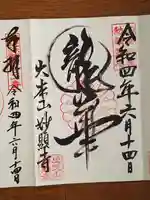 令和四年六月十四日
龍華
大本山妙顕寺
令和四年六月十四日